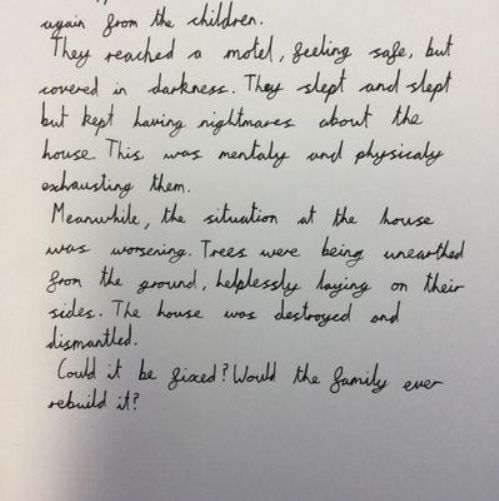 again from the children.
They reached a motel, feeling safe, but
covered in darkness. They slept and slept
but kept having nightmares about the
house. This was mentaly and physicaly
exhausting them.
Meanwhile, the situation at the house
was worsening. Trees were being unearthed
from the ground, helplessly laying on their
sides. The house was destroyed and
dismantled.
Could it be fixed? Would the family ever
rebuild it?